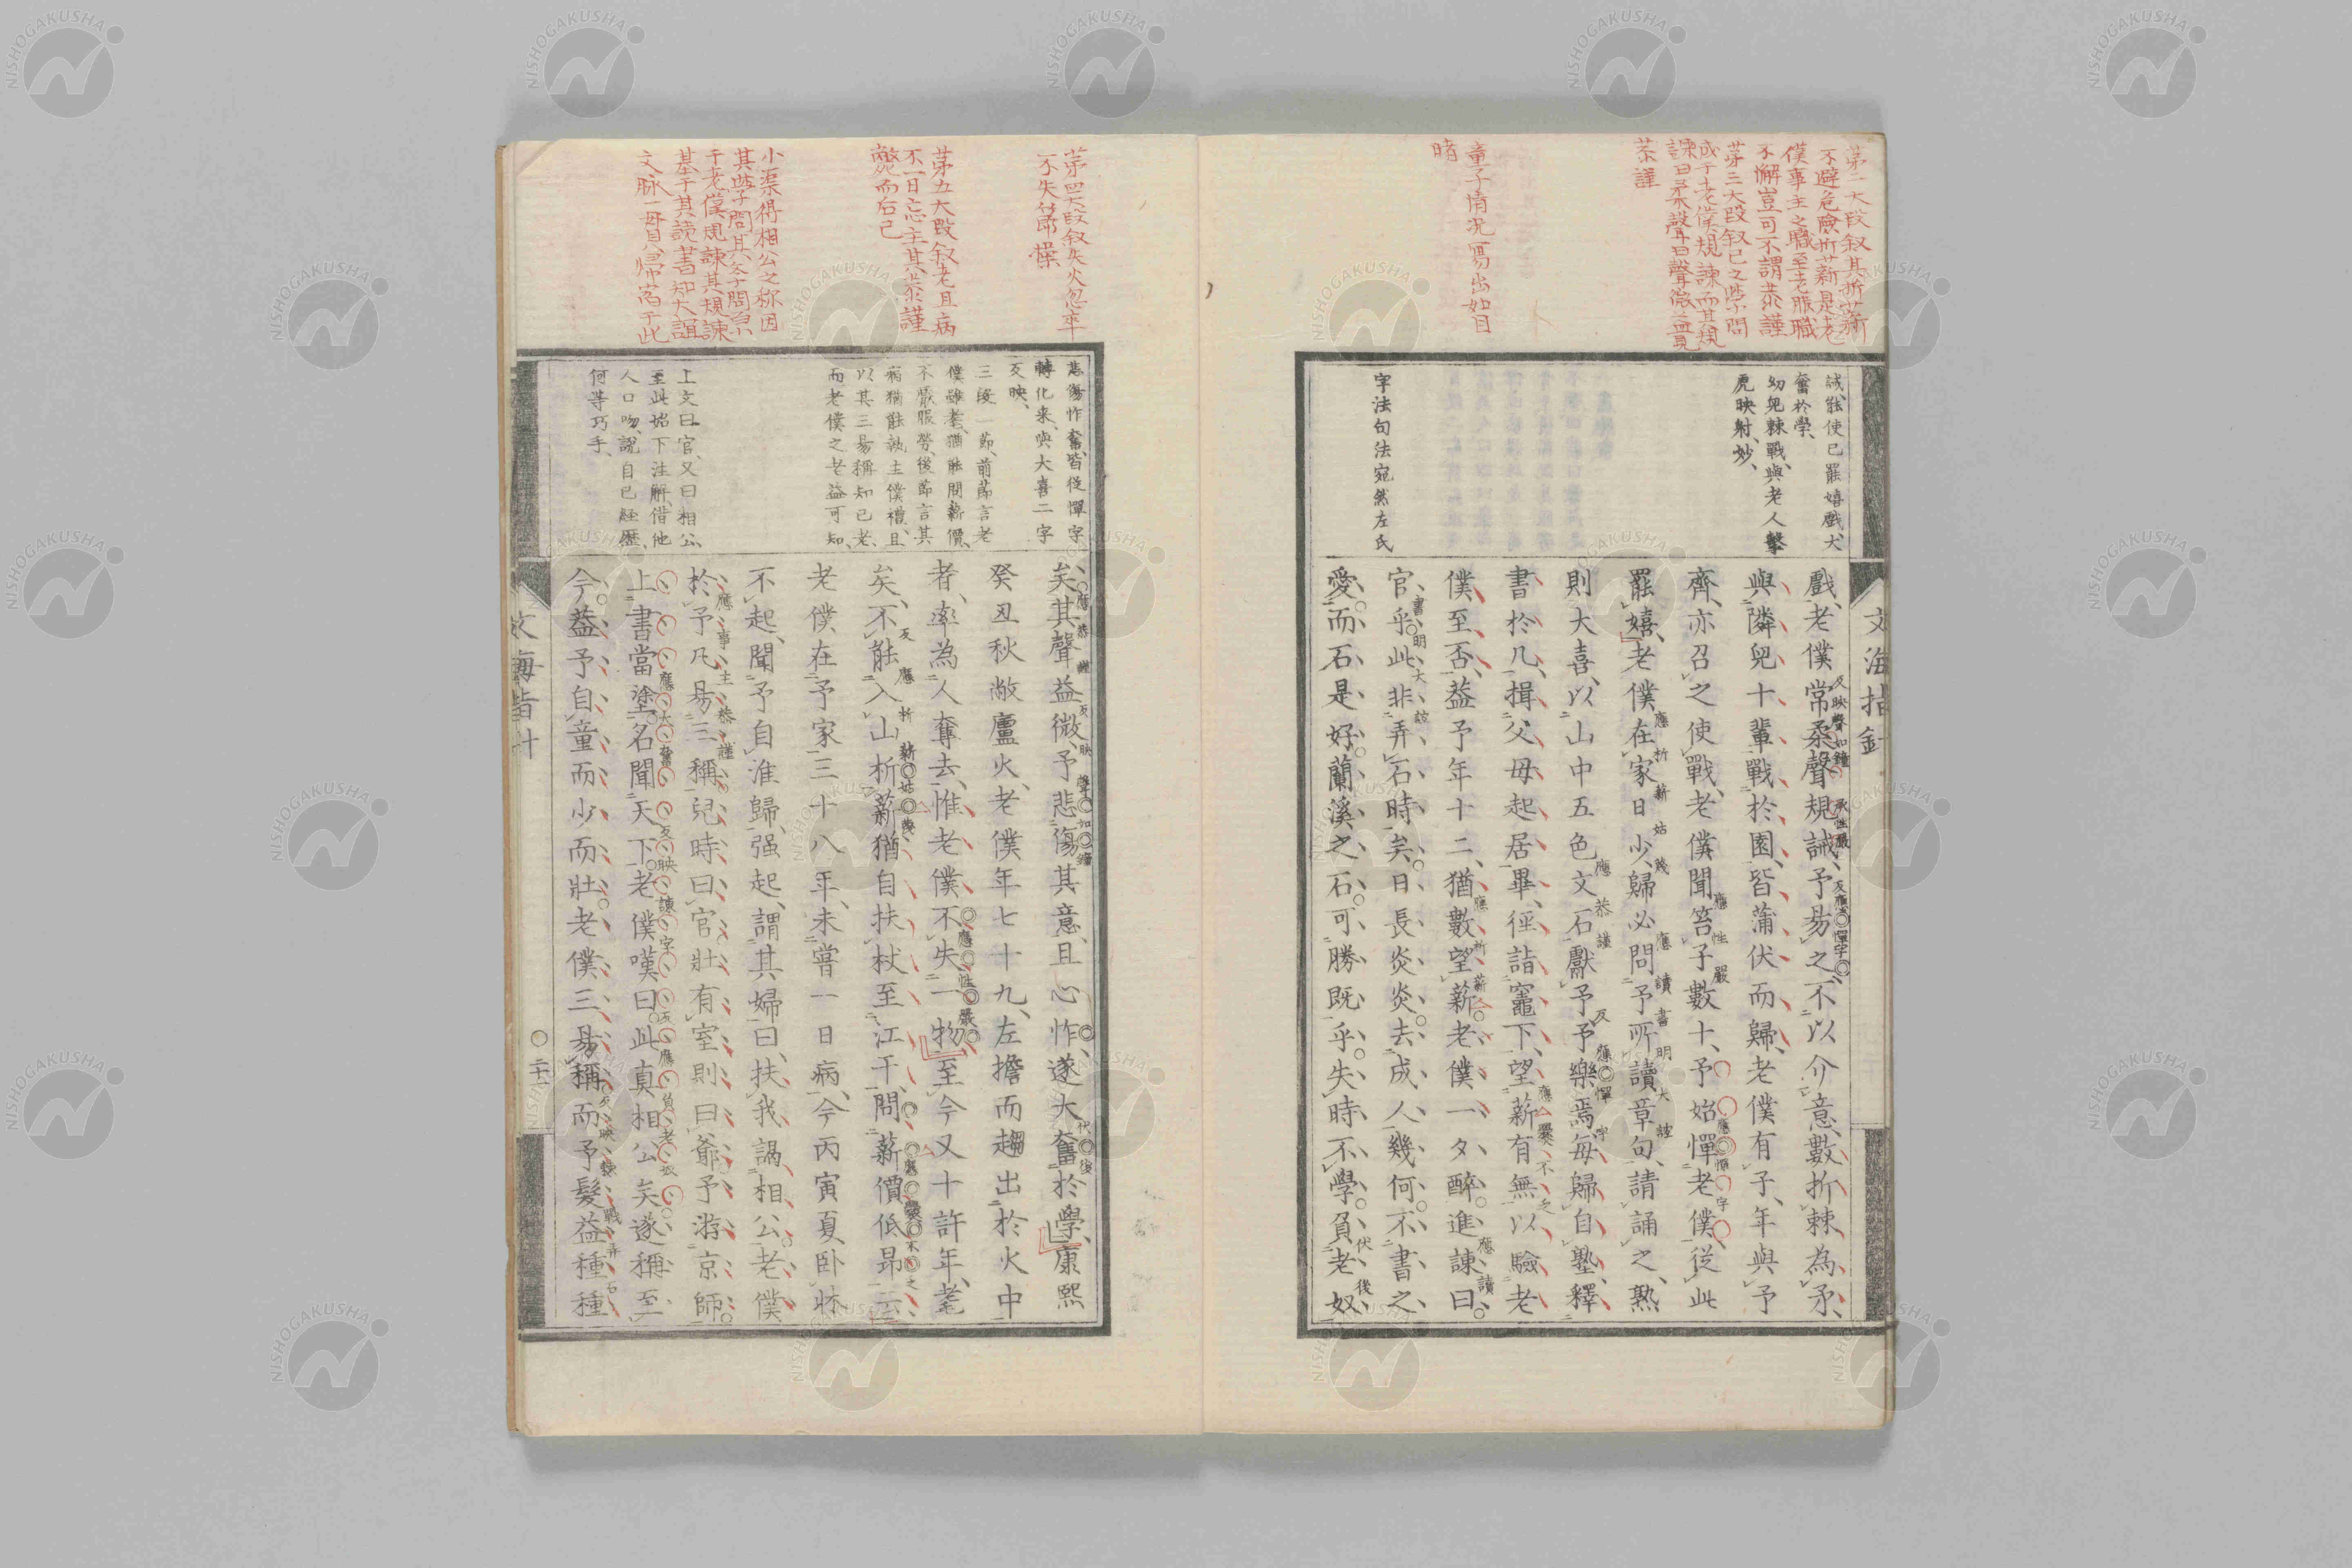 第二大段叙其折薪
不避危險折薪是老
僕事主之職至老服職
不懈豈可不謂恭謹
第三大段叙己之學問
成于老僕規諫而其規
諫曰柔聲曰聲微益見
恭謹
童子情況寫出如目
睹
誡能使己罷嬉戲大
奮於學、
幼兒棘戰與老人擊
虎映射妙、
字法句法宛然左氏
文海指針
戲、老僕常柔聲規誡、予易之、不以介意、數折棘為矛、
與隣兒十輩戰於園、皆蒲伏而歸、老僕有子、年與予
齊、亦召之使戰、老僕聞笞子數十、予始憚老僕、從此
罷嬉、老僕在家日少、歸必問予所讀章句、請誦之、熟
則大喜、以山中五色文石獻予、予樂焉、每歸自塾、釋
書於几、揖父母起居畢、徑詣竈下、望薪有無、以驗老
僕至否、葢予年十二、猶數望薪、老僕一夕醉進諫曰、
官乎、此非弄石時矣、日長炎炎去、成人幾何、不書之
愛、而石是好、蘭溪之石、可勝既乎、失時不學、負老奴
第四大段叙失火忽卒
不失節操
第五大段叙老且病
不一日忘主其恭謹
斃而后已
小渠得相公之称因
其學問其學問自
于老僕規諫其規諫
基于其読書知大誼
文脉一毋貝帰富于此
悲傷怍奮皆從憚字
轉化來與大喜二字
反映、
三段一節前節言老
僕雖耄猶能問薪價、
不廢服勞、後節言其
病猶能執主僕禮、且
以其三易稱知己老、
而老僕之老益可知、
上文曰官、又曰相公、
至此始下注解、借他
人口吻、說自己經歷、
何等巧手、
矣、其聲益微、予悲傷其意、且心怍、遂大奮於學、康熙
癸丑秋敝廬火、老僕年七十九、左擔而趨出於火中
者、率為人奪去、惟老僕不失一物、至今又十許年、耄
矣、不能入山折薪、猶自扶杖至江干、問薪價低昂云、
老僕在予家三十八年、未嘗一日病、今丙寅夏臥牀
不起、聞予自淮歸、强起、謂其婦曰、扶我謁相公、老僕
於予凡易三稱、兒時曰官、壯有室則曰爺、予游京師、
上書當塗、名聞天下、老僕嘆曰、此真相公矣、遂稱至
今、葢予自童而少而壯、老僕三易稱、而予髮益種種
文海指針
〇二十一